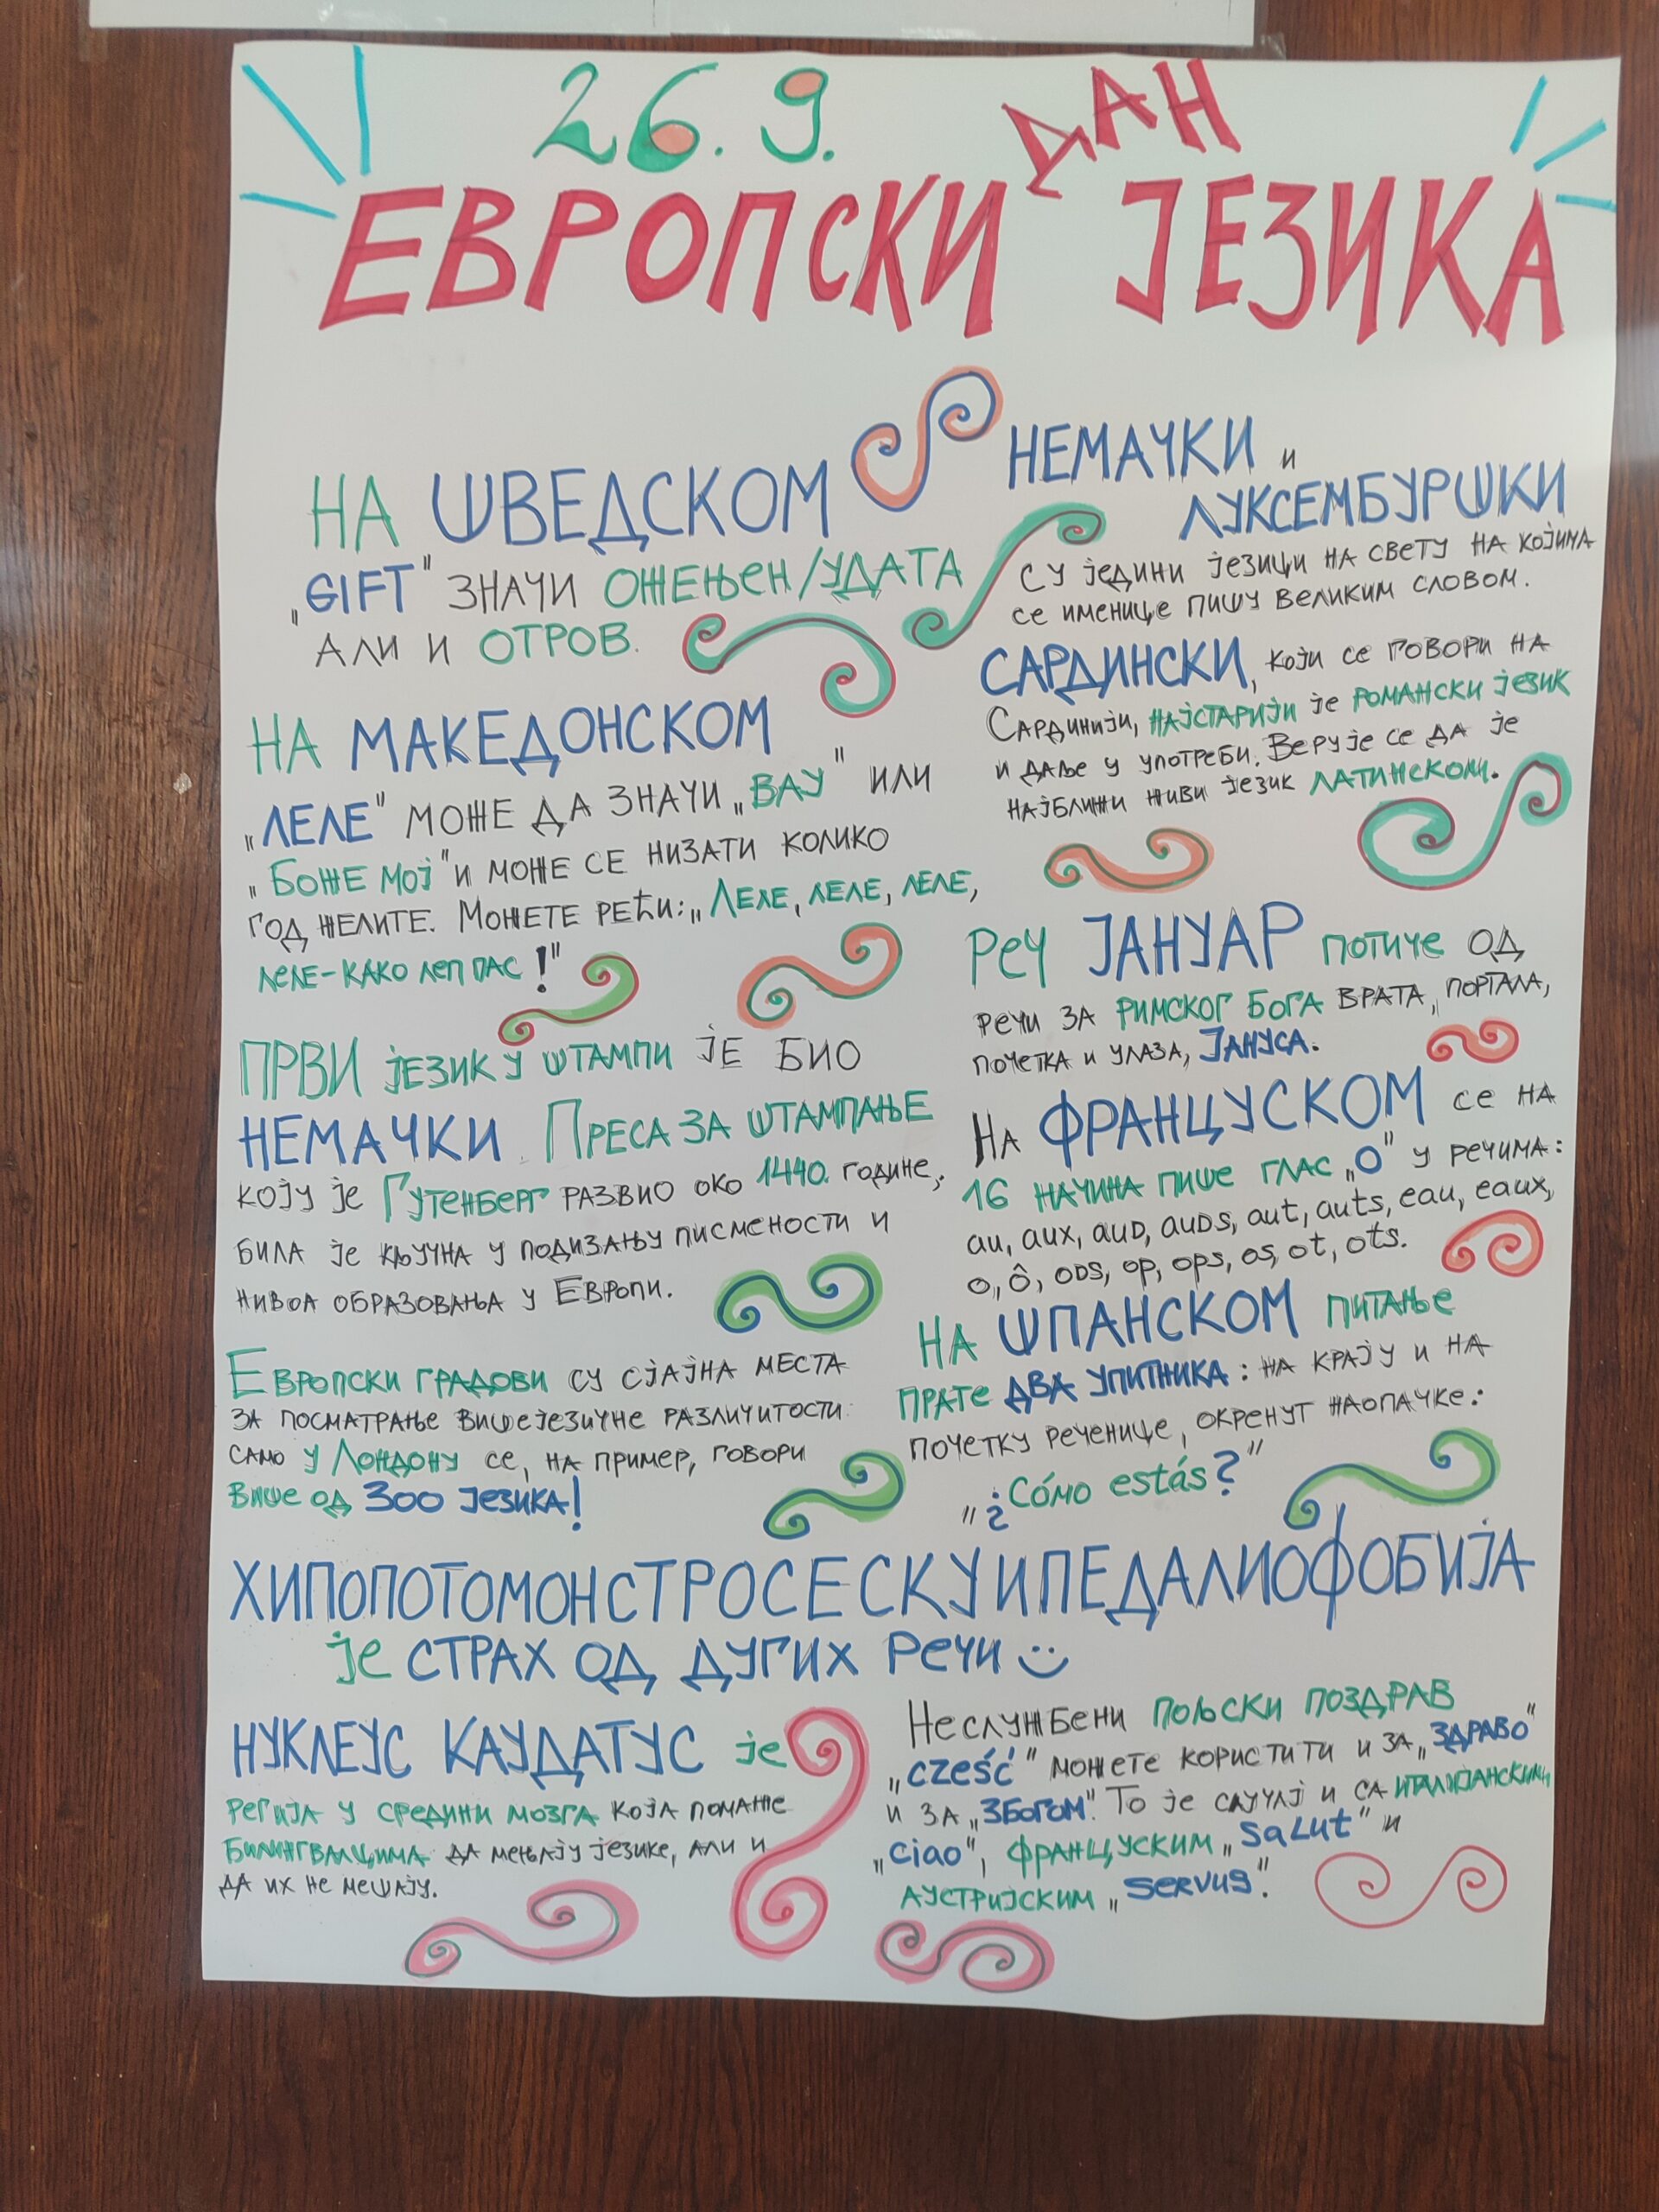 26. 9.
ДАН
ЕВРОПСКИ ЈЕЗИКА
НА ШВЕДСКОМ
„GIFT" ЗНАЧИ ОЖЕЊЕН/УДАТА
АЛИ И ОТРОВ.
НА МАКЕДОНСКОМ
„ЛЕЛЕ" МОЖЕ ДА ЗНАЧИ „ВАУ" ИЛИ
„БОЖЕ МОЈ" И МОЖЕ СЕ НИЗАТИ КОЛИКО
ГОД ЖЕЛИТЕ. МОЖЕТЕ РЕЋИ: „ЛЕЛЕ, ЛЕЛЕ, ЛЕЛЕ,
ЛЕЛЕ-КАКО ЛЕП ПАС!"
ПРВИ ЈЕЗИК У ШТАМПИ ЈЕ БИО
НЕМАЧКИ. ПРЕСА ЗА ШТАМПАЊЕ
КОЈУ ЈЕ ГУТЕНБЕРГ РАЗВИО ОКО 1440. ГОДИНЕ,
БИЛА ЈЕ КЉУЧНА У ПОДИЗАЊУ ПИСМЕНОСТИ И
НИВОА ОБРАЗОВАЊА У ЕВРОПИ.
ЕВРОПСКИ ГРАДОВИ СУ СЈАЈНА МЕСТА
ЗА ПОСМАТРАЊЕ ВИШЕЈЕЗИЧНЕ РАЗЛИЧИТОСТИ:
САМО У ЛОНДОНУ СЕ, НА ПРИМЕР, ГОВОРИ
ВИШЕ ОД 300 ЈЕЗИКА!
НЕМАЧКИ И
ЛУКСЕМБУРШКИ
СУ ЈЕДИНИ ЈЕЗИЦИ НА СВЕТУ НА КОЈИМА
СЕ ИМЕНИЦЕ ПИШУ ВЕЛИКИМ СЛОВОМ.
САРДИНСКИ, КОЈИ СЕ ГОВОРИ НА
САРДИНИЈИ, НАЈСТАРИЈИ ЈЕ РОМАНСКИ ЈЕЗИК
И ДАЉЕ У УПОТРЕБИ. ВЕРУЈЕ СЕ ДА ЈЕ
НАЈБЛИЖИ ЖИВИ ЈЕЗИК ЛАТИНСКОМ.
РЕЧ ЈАНУАР ПОТИЧЕ ОД
РЕЧИ ЗА РИМСКОГ БОГА ВРАТА, ПОРТАЛА,
ПОЧЕТКА И УЛАЗА, ЈАНУСА.
НА ФРАНЦУСКОМ СЕ НА
16 НАЧИНА ПИШЕ ГЛАС „О" У РЕЧИМА:
au, aux, auD, auDs, aut, auts, eau, eaux,
o, ô, oDs, op, ops, os, ot, ots.
НА ШПАНСКОМ ПИТАЊЕ
ПРАТЕ ДВА УПИТНИКА: НА КРАЈУ И НА
ПОЧЕТКУ РЕЧЕНИЦЕ, ОКРЕНУТ НАОПАЧКЕ:
„¿Cómo estás?"
ХИПОПОТОМОНСТРОСЕСКУИПЕДАЛИОФОБИЈА
ЈЕ СТРАХ ОД ДУГИХ РЕЧИ
НУКЛЕУС КАУДАТУС ЈЕ
РЕГИЈА У СРЕДИНИ МОЗГА КОЈА ПОМАЖЕ
БИЛИНГВАЛЦИМА ДА МЕЊАЈУ ЈЕЗИКЕ, АЛИ И
ДА ИХ НЕ МЕШАЈУ.
НЕСЛУЖБЕНИ ПОЉСКИ ПОЗДРАВ
„cześć" МОЖЕТЕ КОРИСТИТИ И ЗА „ЗДРАВО"
И ЗА „ЗБОГОМ". ТО ЈЕ СЛУЧАЈ И СА ИТАЛИЈАНСКИМ
„ciao", ФРАНЦУСКИМ „SaLut" И
АУСТРИЈСКИМ „Servus".